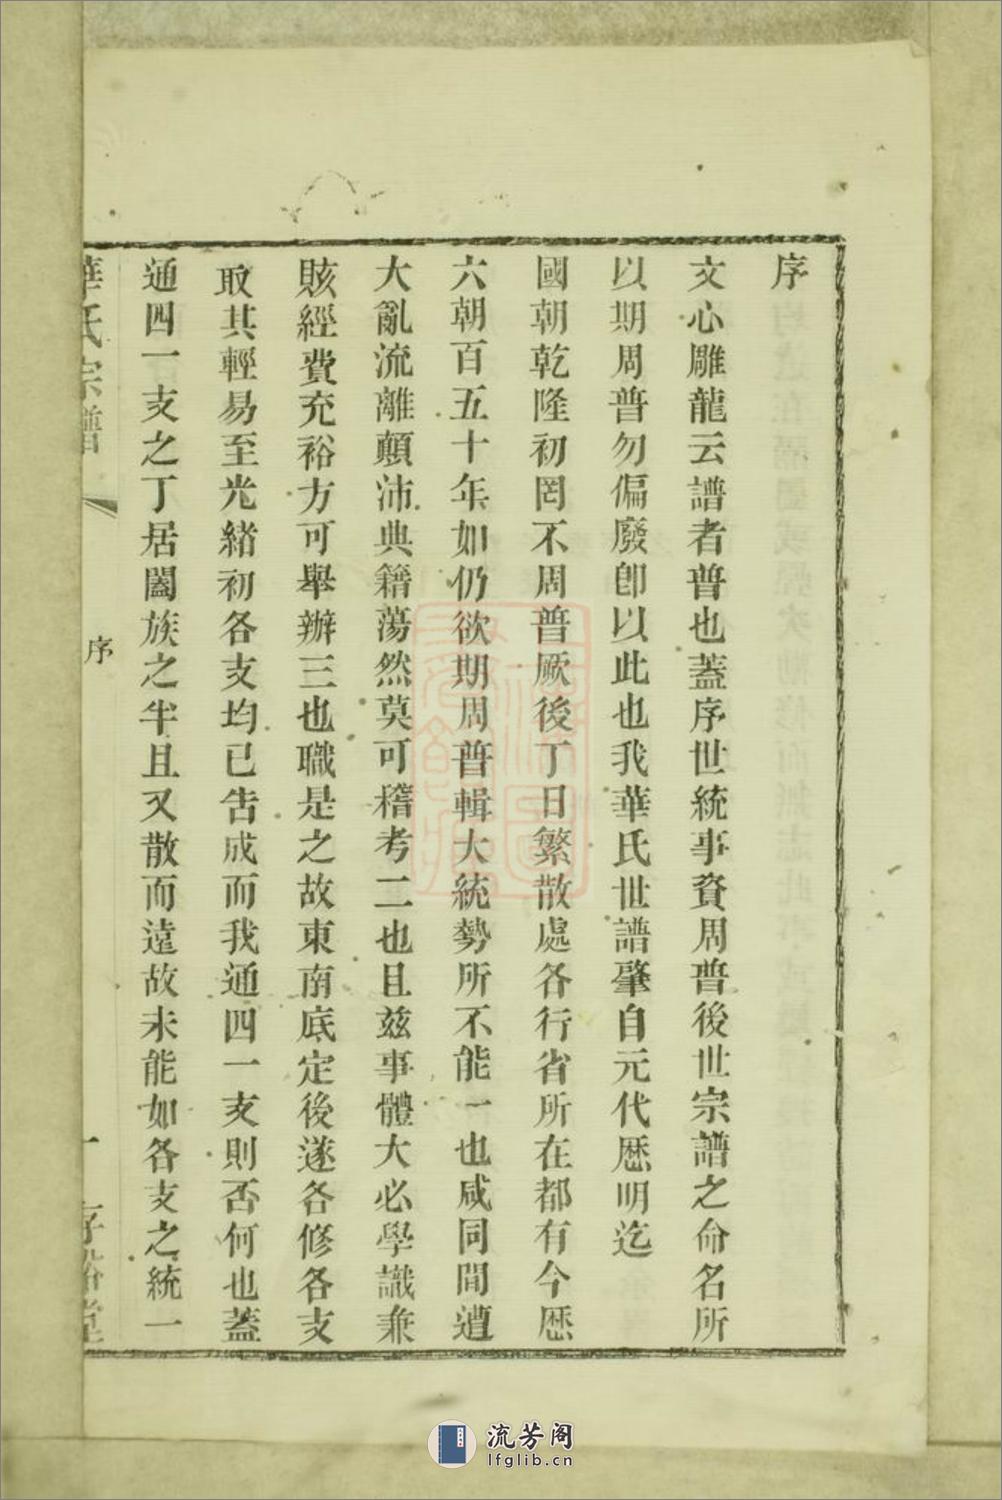 序
文心雕龍云譜者普也蓋序世統事資周普後世宗譜之命名所
以期周普勿偏廢卽以此也我華氏世譜肇自元代歷明迄
國朝乾隆初罔不周普厥後丁日繁散處各行省所在都有今歷
六朝百五十年如仍欲期周普輯大統勢所不能一也咸同間遭
大亂流離顛沛典籍蕩然莫可稽考二也且茲事體大必學識兼
賅經費充裕方可舉辦三也職是之故東南底定後遂各修各支
取其輕易至光緒初各支均已告成而我通四一支則否何也蓋
通四一支之丁居闔族之半且又散而遠故未能如各支之統一
華氏宗譜
序
一
存裕堂
流芳阁
lfglib.cn